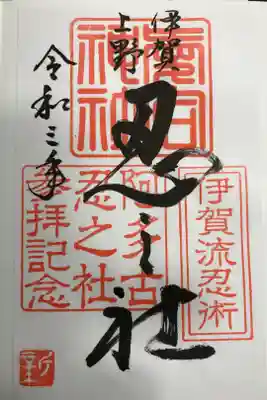 伊賀
上野
忍之社
令和三年
愛宕
神社
伊賀流忍術
阿多古
忍之社
參拝記念